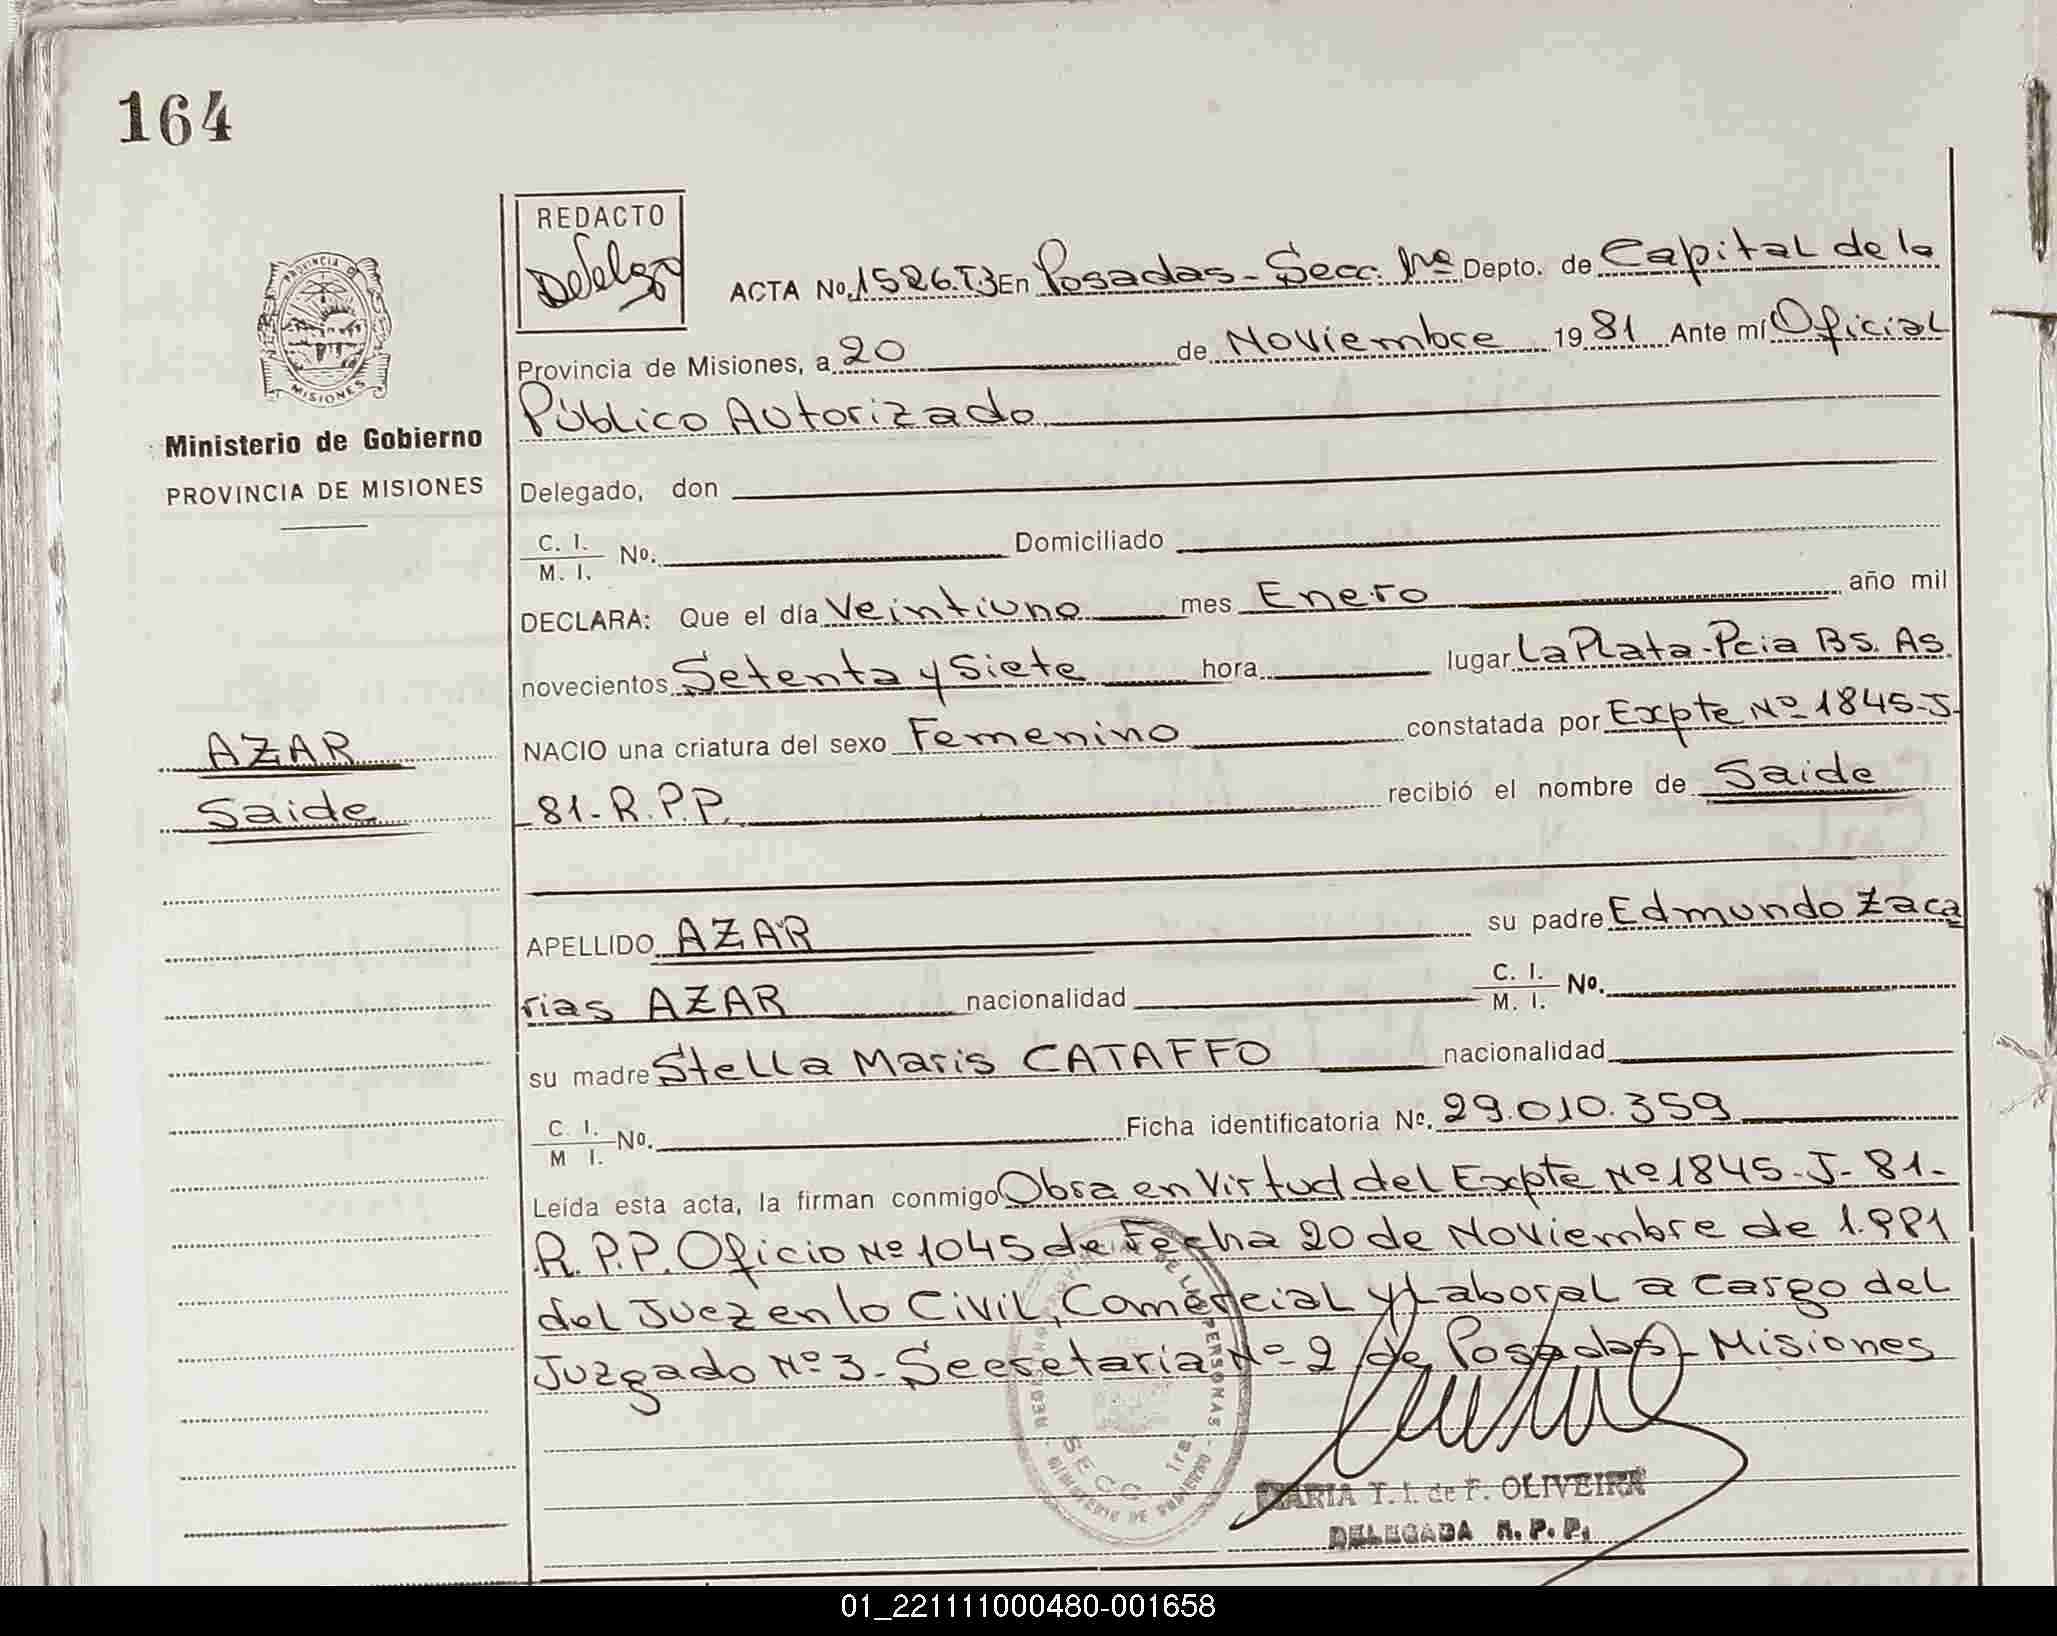 164
REDACTO
ACTA No. 1526.T3 En Posadas - Secc. 1ra Depto. de Capital de la
Provincia de Misiones, a 20 de Noviembre 1981 Ante mí Oficial
Público Autorizado
PROVINCIA DE
MISIONES
Ministerio de Gobierno
PROVINCIA DE MISIONES
Delegado, don
C. I.
M. I. No. Domiciliado
DECLARA: Que el día Veintiuno mes Enero año mil
novecientos Setenta y Siete hora lugar La Plata - Pcia Bs. As.
NACIO una criatura del sexo Femenino constatada por Expte Nº 1845-J-
81-R.P.P. recibió el nombre de Saide
AZAR
Saide
APELLIDO AZAR su padre Edmundo Zaca
rias AZAR nacionalidad C. I. M. I. No.
su madre Stella Maris CATAFFO nacionalidad
C. I. M I. No. Ficha identificatoria Nº. 29.010.359
Leída esta acta, la firman conmigo Obra en Virtud del Expte Nº 1845-J-81-
R.P.P. Oficio Nº 1045 de Fecha 20 de Noviembre de 1.981
del Juez en lo Civil, Comercial y Laboral a cargo del
Juzgado Nº 3 - Secretaria Nº 2 de Posadas - Misiones
DE LAS PERSONAS
SECC. 1ra.
MINISTERIO DE GOBIERNO
MARIA T. I. de F. OLIVEIRA
DELEGADA R. P. P.
01_221111000480-001658